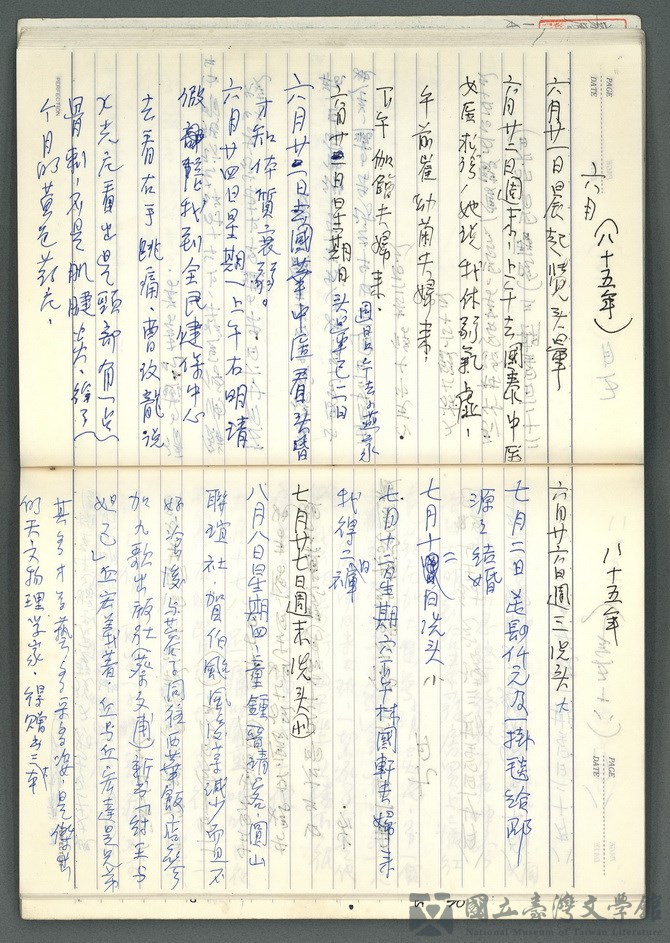 六月(八十五年)
六月廿一日晨起覺頭暈
六月廿二日週末,上午去國泰中医
女医杜瑩,她说我体弱氣虛,
午前崔幼蘭夫婦来,
下午伽館夫婦来.
週六晚上去燕家
六月廿三日星期日头暈已二日
六月廿一日去國華中医看头昏
才知体質衰弱。
六月廿四日星期一上午右明請
假 龍我到全民健保中心
去看右手跳痛,曹汶龍说
X光片看出是頸部有一点
骨刺,不是肌腱炎,给了一
个月的黄色葯片.
八十五年
六月廿六日週三洗头大
七月二日 美勛仟元及一掛毯给耶
源之结婚
七月十二日洗头小
七月十三日星期六下午林國軒夫婦来
我得二褲
七月廿七日週末洗头
八月八日星期四,童鍾晉請客,圓山
聯誼社,賀伯颱風後菜減少而且不
好 後与 同往西華飯店参
加九歌出版社(蔡文甫)新書「紂王与
妲己」 丘宏義著,丘宏達是兄弟
其多才多藝多采多姿,是傑出
的天文物理学家.得贈書三本
PAGE
DATE
PAGE
DATE
國立臺灣文學館
National Museum of Taiwan Literature